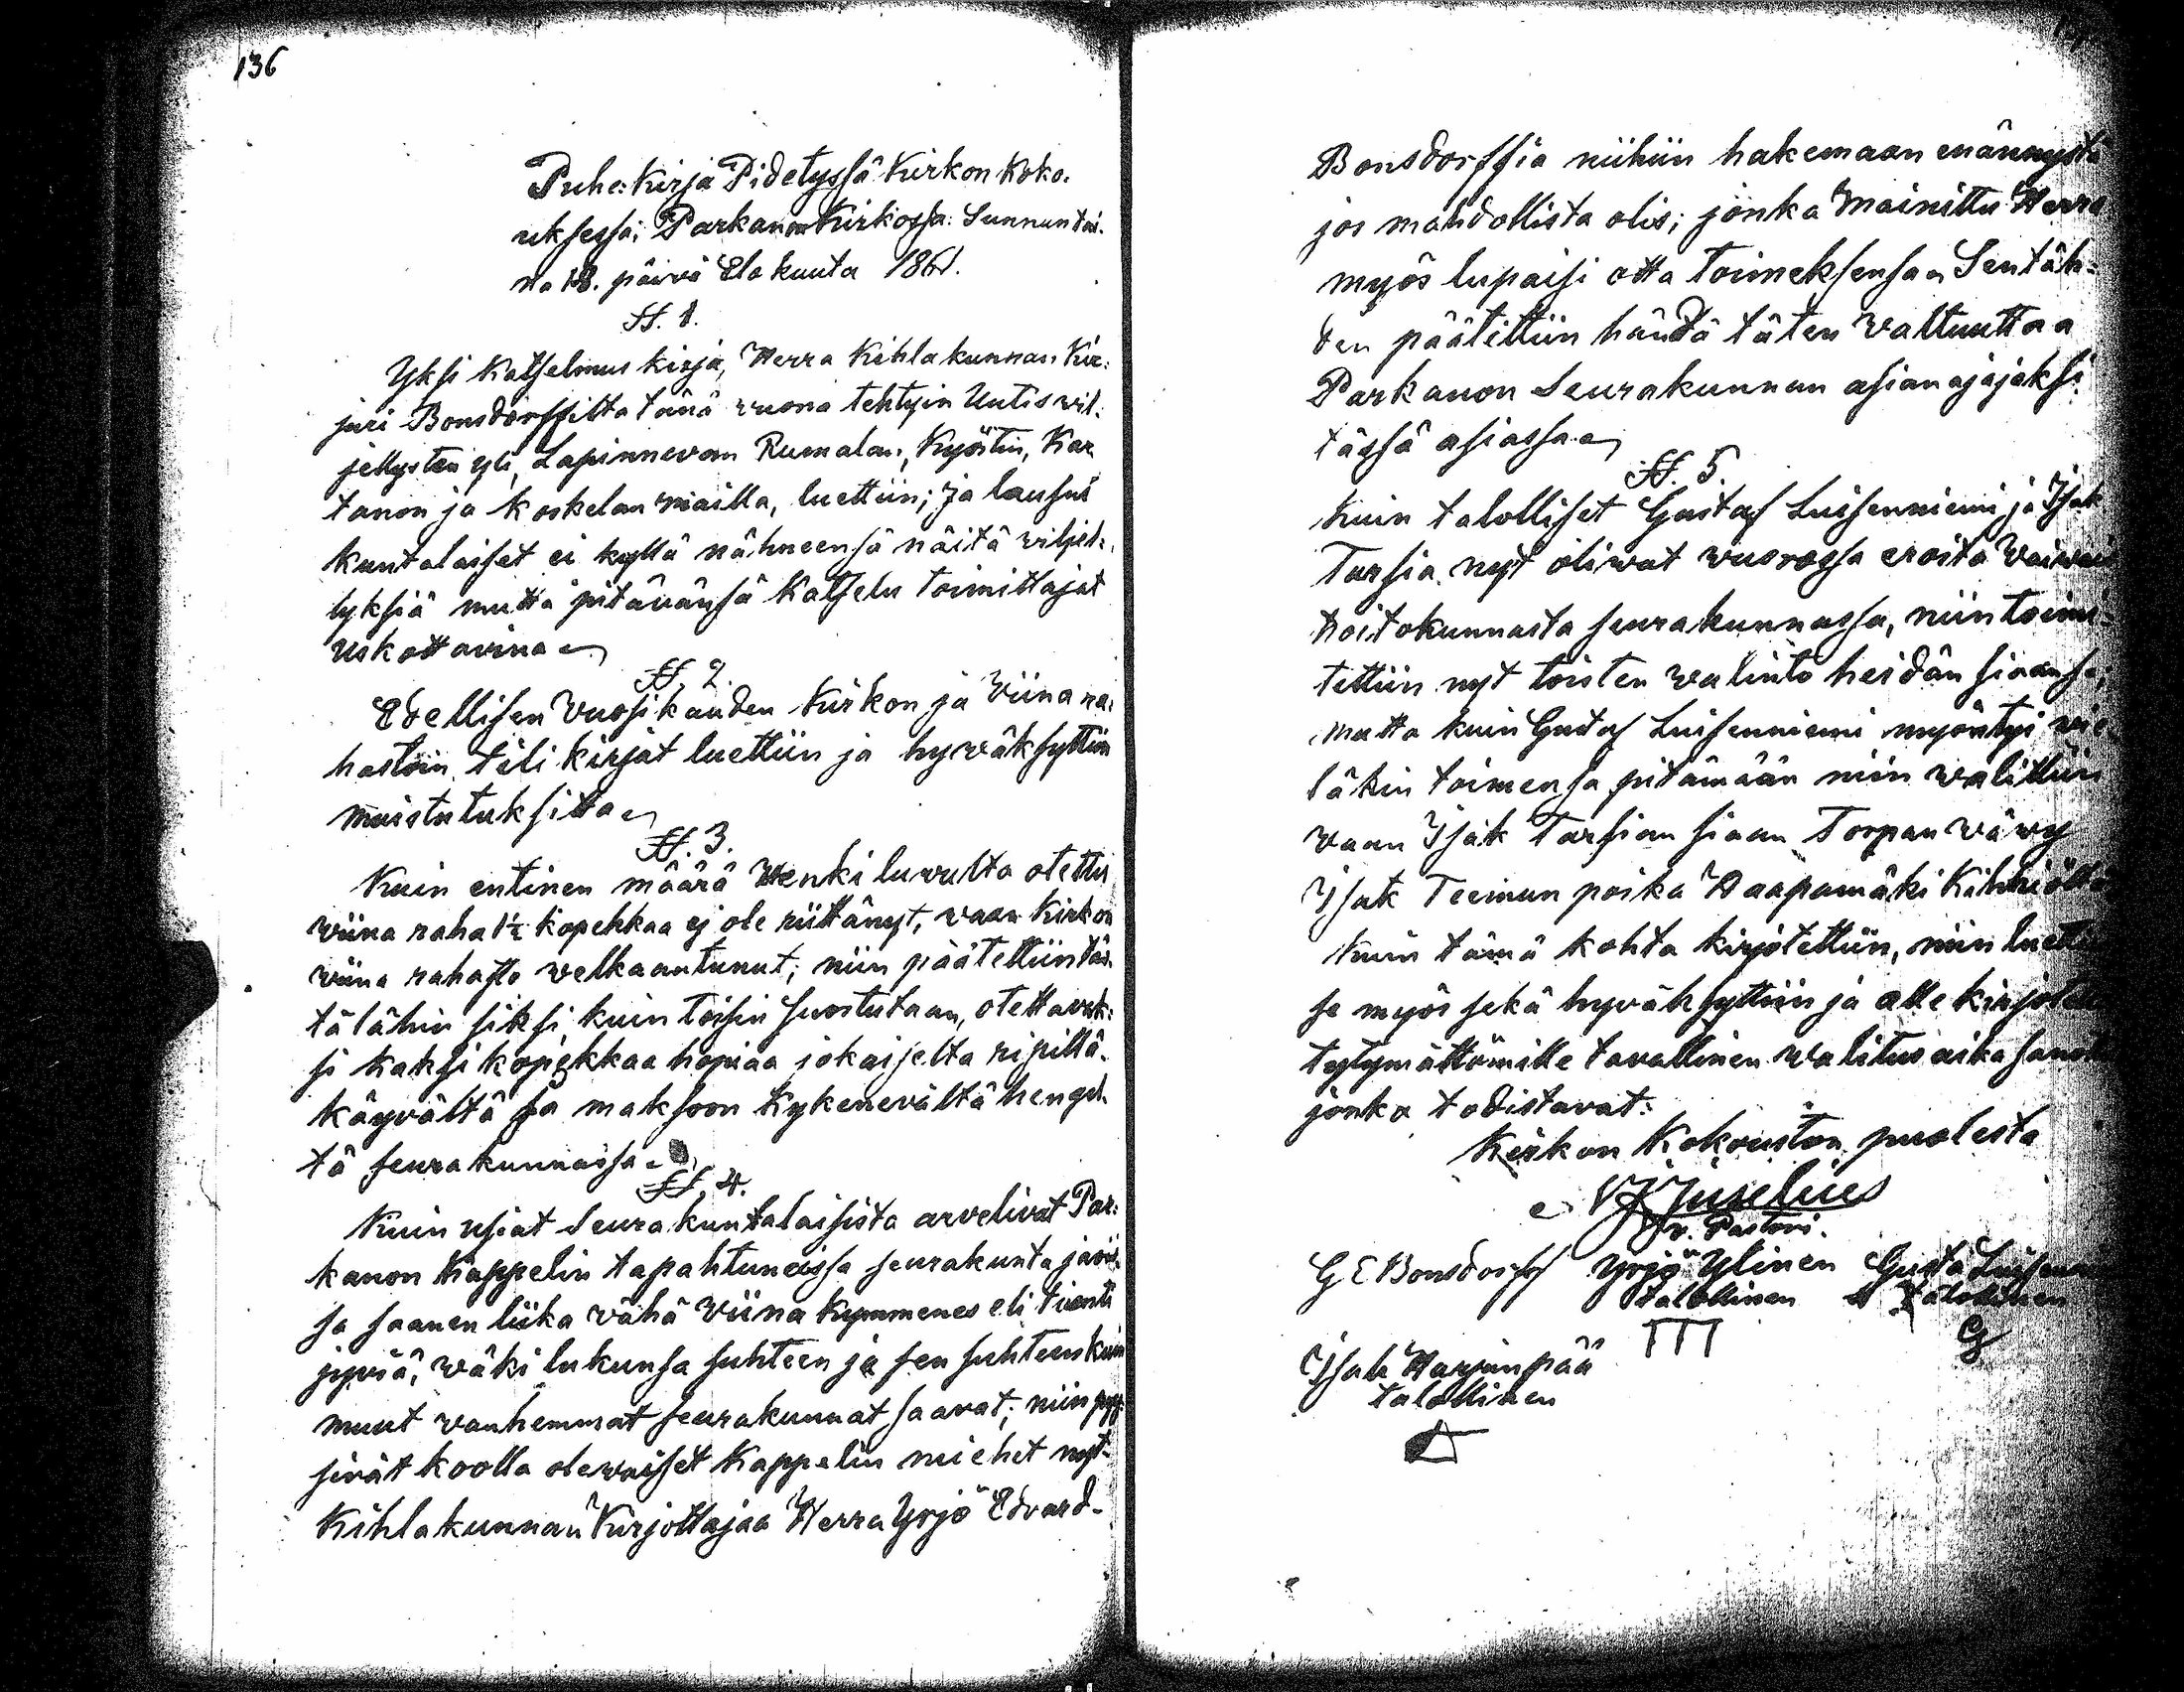 136
Puhe: Kirja Pidetyssä Kirkon Koko-
uksessa; Parkanon Kirkossa: Sunnuntai-
na 18. päivä Elokuuta 1861.
§§. 1.
Yksi Katselmus kirja, Herra Kihlakunnan Kir-
juri Bonsdorffilta tänä vuona tehtyin Uutiswil-
jellysten yli, Lapinnevan Rumalan, Kyöstin, Kar
tanon ja Koskelan mailla, luettiin; ja lausui
kuntalaiset ei kyllä nähneensä näitä wiljel-
lyksiä mutta pitävänsä Katselu toimittajat
uskottavina
§§. 2.
Edellisen Vuosikauden Kirkon ja Viina ra-
hastoin tili kirjat luettiin ja hywäksyttiin
muistutuksitta
§§. 3.
Kuin entinen määrä Henki luvulta otettu
wiina raha 1½ kopekkaa ej ole riittänyt, waan Kirkon
viina rahasto welkaantunut; niin päätettiin täs-
tälähin siksi kuin toisin suostutaan, otettavak-
si kaksi kopekkaa hopiaa jokaiselta ripillä-
käyvältä ja maksoon kykenevältä hengel-
tä seurakunnassa
§§. 4.
Kuin usiat Seurakuntalaisista arvelivat Par-
kanon Kappelin tapahtuneissa seurakunta jaois-
sa saanen liika vähä Viina kymmenes eli tionti
jyviä, wäki lukunsa suhteen ja sen suhteen kuin
muut vanhemmat seurakunnat saavat; niin pyy-
sivät koolla olewaiset Kappelin miehet nyt-
Kihlakunnan Kirjottajaa Herra Yrjö Edvard-
Bonsdorffia niihiin hakemaan enännystä
jos mahdollista olis; jonka Mainittu Herra
myös lupaisi otta toimeksensa Sentäh-
den päätettiin händä täten Waltuuttaa
Parkanon Seurakunnan asianajajaksi
tässä asiassa
§§. 5.
Kuin talolliset Gustaf Luisenniemi ja Isak
Tarsia nyt oliwat vuorossa erota Vaivais
hoitokunnasta seurakunnassa, niin toimi-
tettiin nyt toisten walinto heidän siaansa;
mutta kuin Gustaf Luisenniemi myöntyi wie
läkin toimensa pitämään niin walittiin
vaan Isak Tarsian siaan Torpan wäwy
Isak Teemun poika Haapamäki Kihniöltä
Kuin tämä kohta kirjotettiin, niin luetti
se myös sekä hyväksyttiin ja alle kirjotett
tytymättömille tavallinen walitus aika sanott
jonka todistavat:
Kirkon Kokouston puolesta
Juselius
v. Pastori.
G E Bonsdorff Yrjö Ylinen Gusta Luisenn
talollinen talollinen
Isak Harjunpää
talollinen